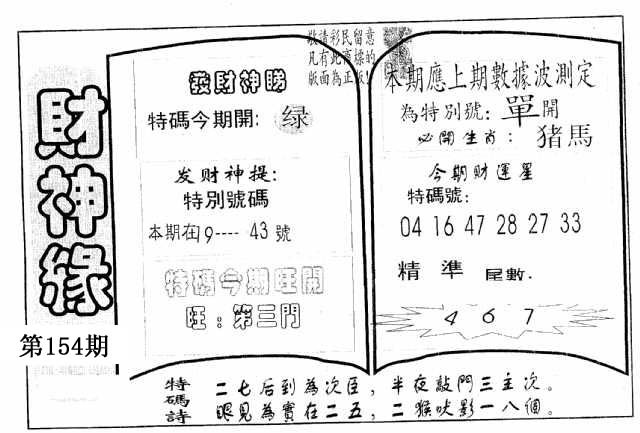 敬請彩民留意
凡有此商標的
版面為正版!
財神緣
第154期
發財神睇
特碼今期開: 绿
发财神提:
特別號碼
本期在9---- 43 號
特碼今期旺開
旺:第三門
本期應上期數據波測定
為特別號: 單 開
必開生肖: 猪馬
今期财運星
特碼號:
04 16 47 28 27 33
精 準 尾數.
4 6 7
特碼詩
二七后到為次臣,半夜敲門三主次。
眼見為實在二五,二猴吠影一八個。